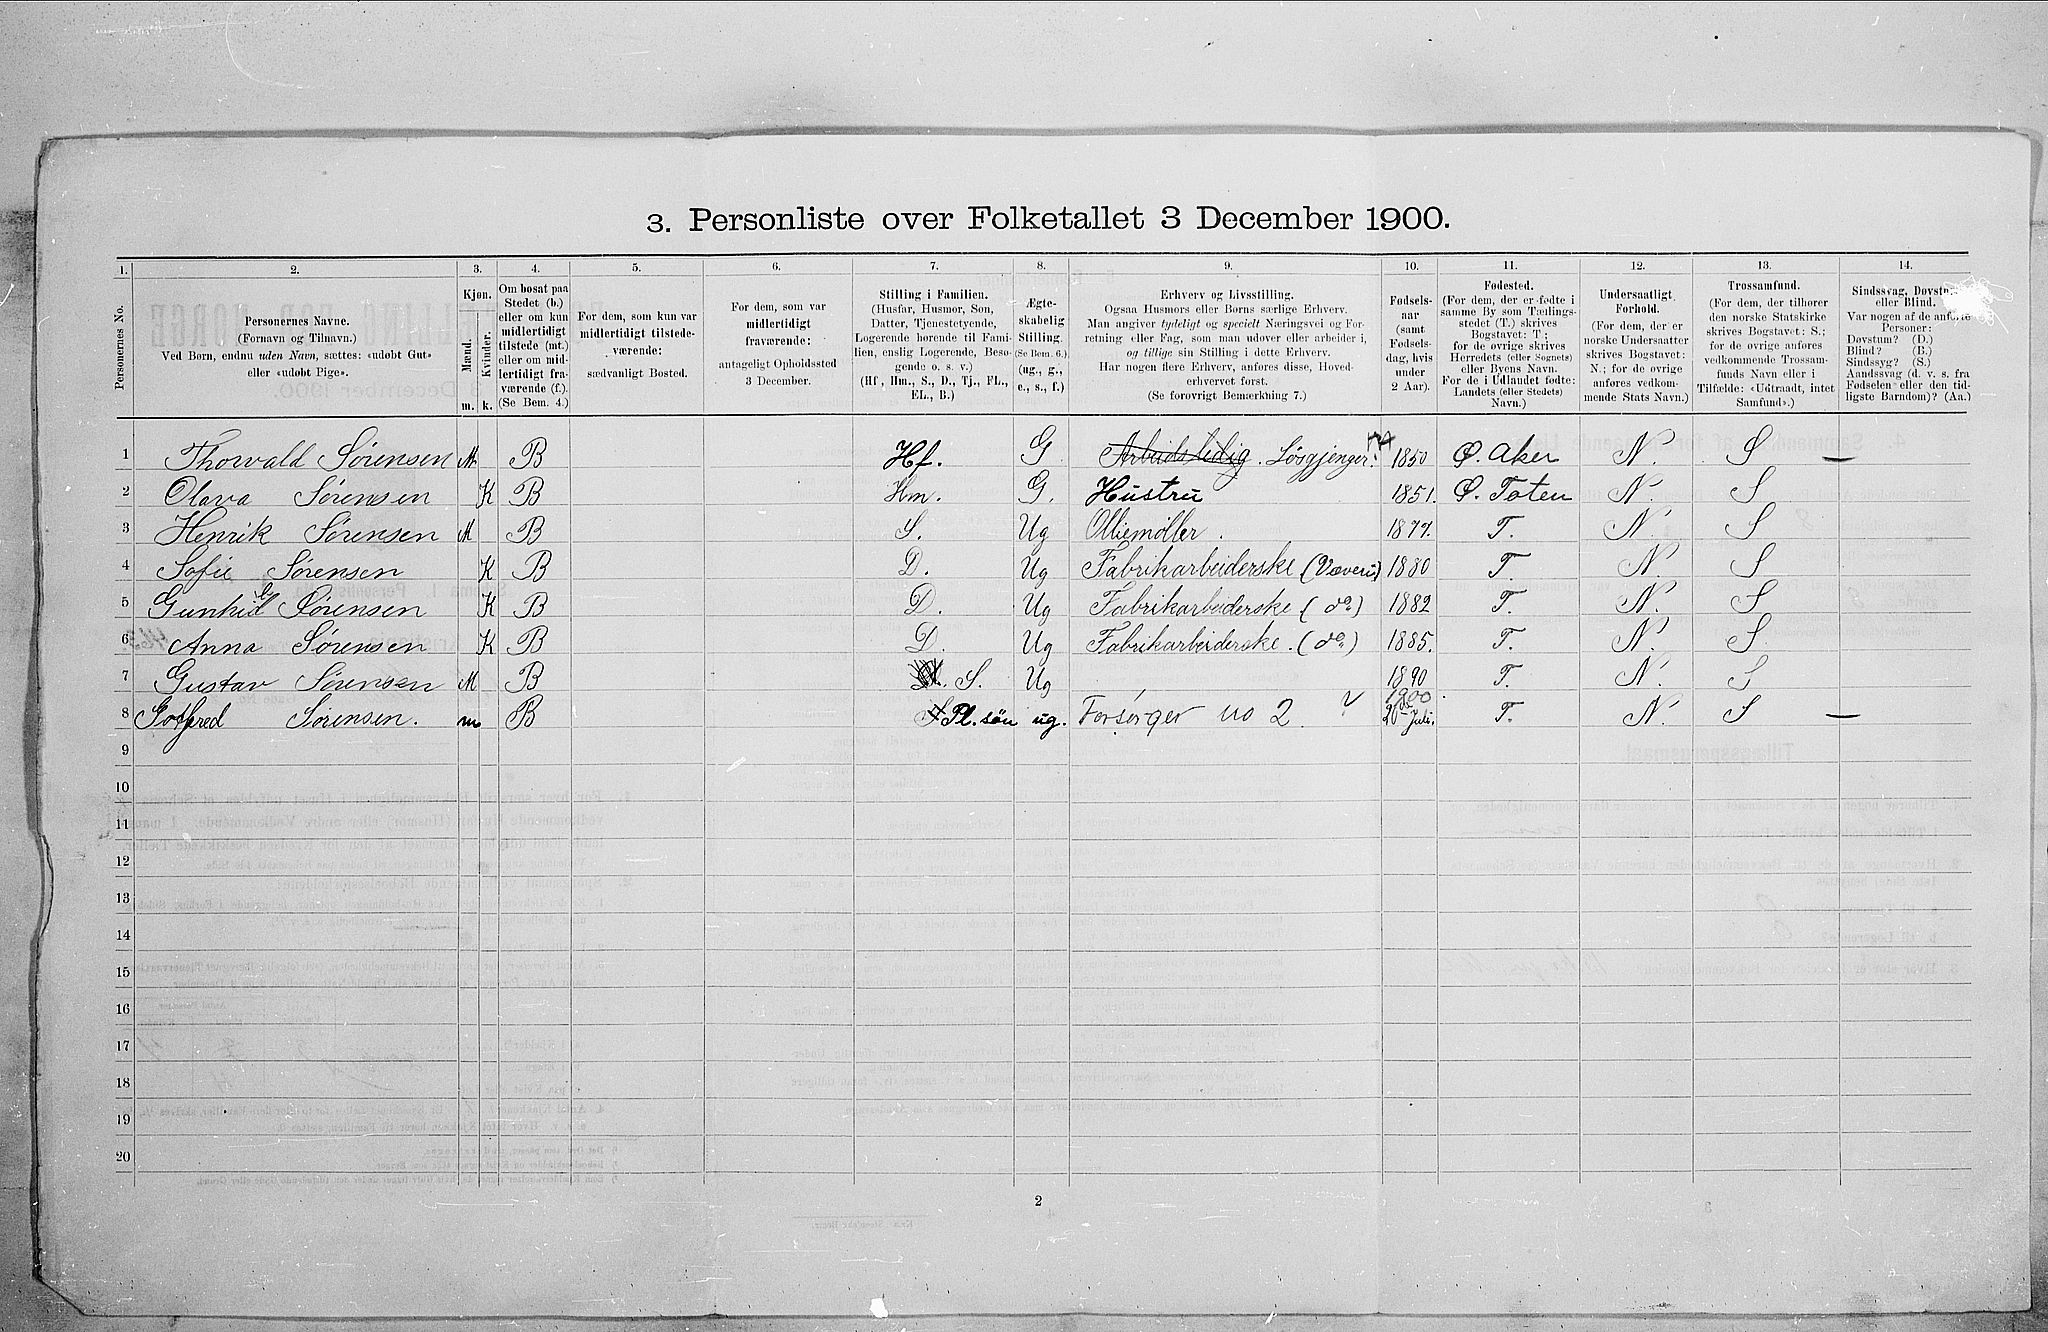 3. Personliste over Folketallet 3 December 1900.
1. 2. 3. 4. 5. 6. 7. 8. 9. 10. 11. 12. 13. 14.
Personernes No.
Personernes Navne.
(Fornavn og Tilnavn.)
Ved Børn, endnu uden Navn, sættes: «udøbt Gut»
eller «udøbt Pige».
Kjøn.
Mænd.
Kvinder.
m. k.
Om bosat paa
Stedet (b.)
eller om kun
midlertidigt
tilstede (mt.)
eller om mid-
lertidigt fra-
værende (f.).
(Se Bem. 4.)
For dem, som kun var
midlertidigt tilstede-
værende:
sædvanligt Bosted.
For dem, som var
midlertidigt
fraværende:
antageligt Opholdssted
3 December.
Stilling i Familien.
(Husfar, Husmor, Søn,
Datter, Tjenestetyende,
Logerende hørende til Fami-
lien, enslig Logerende, Besø-
gende o. s. v.)
(Hf, Hm., S., D., Tj., FL.,
EL., B.)
Ægte-
skabelig
Stilling.
(Se Bem. 6.)
(ug., g.,
e., s., f.)
Erhverv og Livsstilling.
Ogsaa Husmors eller Børns særlige Erhverv.
Man angiver tydeligt og specielt Næringsvei og For-
retning eller Fag, som man udover eller arbeider i,
og tillige sin Stilling i dette Erhverv.
Har nogen flere Erhverv, anføres disse, Hoved-
erhvervet først.
(Se forøvrigt Bemærkning 7.)
Fødsels-
aar
(samt
Fødsels-
dag, hvis
under
2 Aar).
Fødested.
(For dem, der er fødte i
samme By som Tællings-
stedet (T.) skrives
Bogstavet: T;
for de øvrige skrives
Herredets (eller Sognets)
eller Byens Navn.
For de i Udlandet fødte:
Landets (eller Stedets)
Navn.)
Undersaatligt
Forhold.
(For dem, der er
norske Undersaatter
skrives Bogstavet:
N.; for de øvrige
anføres vedkom-
mende Stats Navn.)
Trossamfund.
(For dem, der tilhører
den norske Statskirke
skrives Bogstavet: S.;
for de øvrige anføres
vedkommende Trossam-
funds Navn eller i
Tilfælde: «Udtraadt, intet
Samfund».)
Sindssvag, Døvstum
eller Blind.
Var nogen af de anførte
Personer:
Døvstum? (D.)
Blind? (B.)
Sindssyg? (S.)
Aandssvag (d. v. s. fra
Fødselen eller den tid-
ligste Barndom)? (Aa.)
1 Thorvald Sørensen M. B Hf. G Arbeidsledig. Løsgjænger. 1850 Ø. Aker N. S —
2 Olava Sørensen K B Hm. G. Hustru 1851. Ø. Toten N. S
3 Henrik Sørensen M B S. Ug Olliemøller. 1877. T. N. S
4 Sofie Sørensen K B D. Ug Fabrikarbeiderske (Væveri) 1880 T. N. S
5 Gunhild Sørensen K B D. Ug Fabrikarbeiderske (do) 1882 T. N. S
6 Anna Sørensen K B D. Ug Fabrikarbeiderske. (do) 1885. T. N. S.
7 Gustav Sørensen M B S. Ug 1890 T. N. S
8 Gotfred Sørensen. m B Pl. søn ug. Forsørger no 2 ? 1900 20de Juli. T. N. S —
9
10
11
12
13
14
15
16
17
18
19
20
2